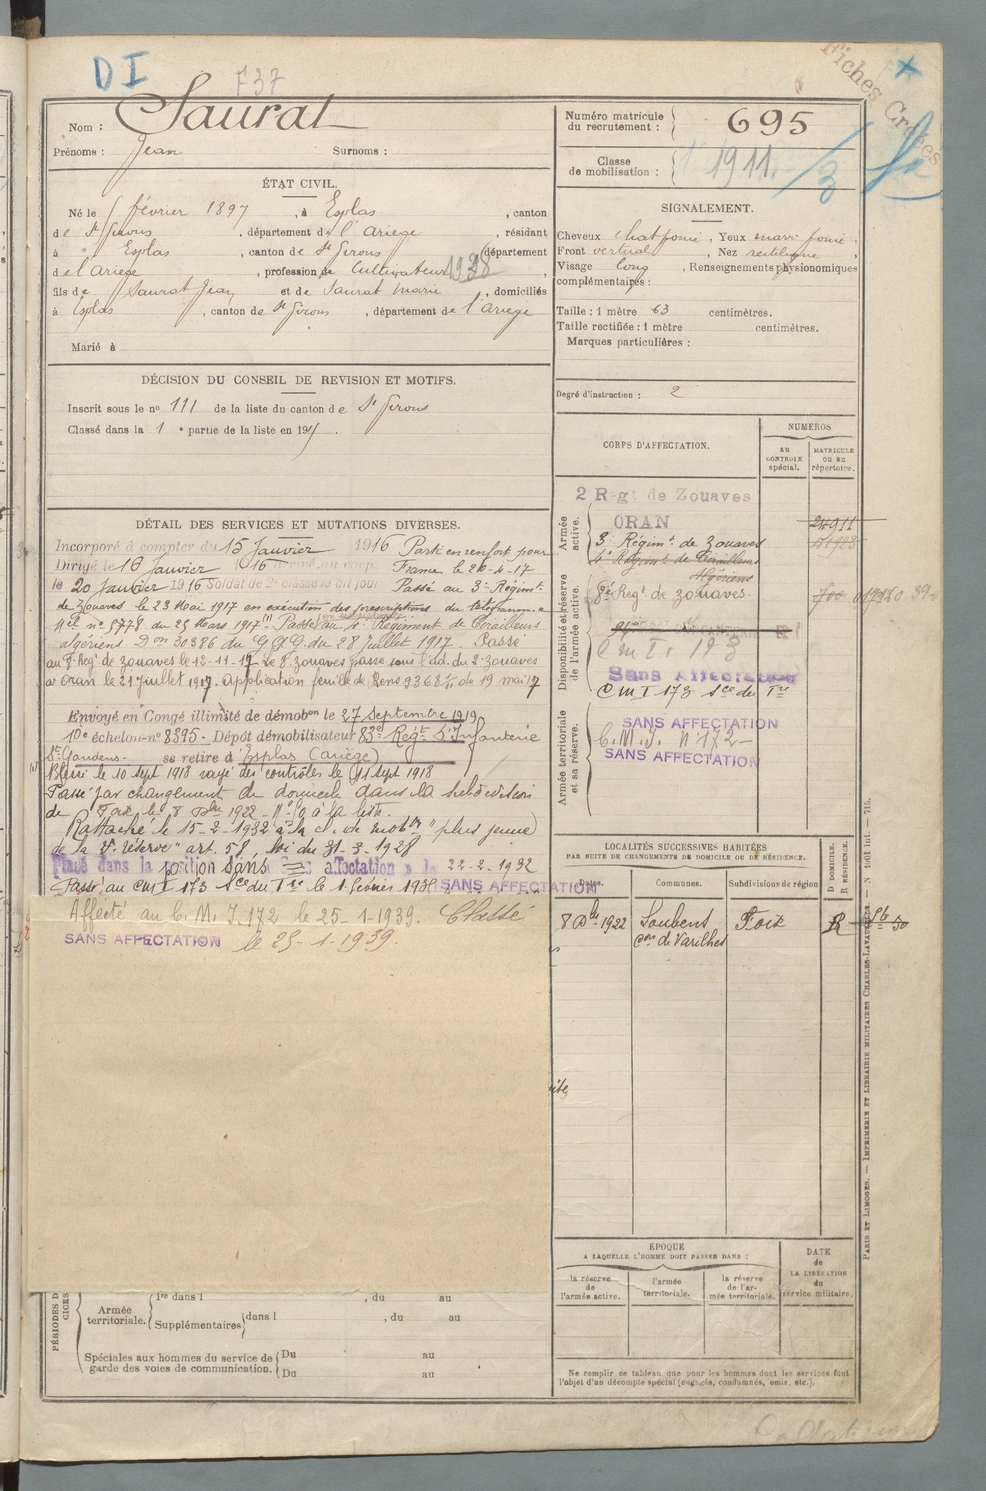 DI
F37
Fiches Créées
Nom : Saurat
Prénoms : Jean Surnoms :
Numéro matricule du recrutement : 695
Classe de mobilisation : 1911
ÉTAT CIVIL.
Né le février 1897, à Esplas, canton
de St Girons, département de l'Ariege, résidant
à Esplas, canton de St Girons, département
de l'Ariege, profession de Cultivateur
1938
fils de Saurat Jean et de Saurat Marie, domiciliés
à Esplas, canton de St Girons, département de l'Ariege
Marié à
SIGNALEMENT.
Cheveux chat foncé, Yeux marr foncé,
Front vertical, Nez rectiligne,
Visage long, Renseignements physionomiques
complémentaires :
Taille : 1 mètre 63 centimètres.
Taille rectifiée : 1 mètre centimètres.
Marques particulières :
Degré d'instruction : 2
DÉCISION DU CONSEIL DE REVISION ET MOTIFS.
Inscrit sous le no 111 de la liste du canton de St Girons
Classé dans la 1e partie de la liste en 191
DÉTAIL DES SERVICES ET MUTATIONS DIVERSES.
Incorporé à compter du 15 Janvier 1916 Parti en renfort pour
Dirigé le 16 Janvier 1916 arrivé au corps France le 20-4-17
le 20 Janvier 1916 Soldat de 2e classe le dit jour Passé au 3e Régimt
de Zouaves le 23 Mai 1917 en exécution des prescriptions du télégramme
Mel no 5778 du 25 Mars 1917 Passé au 1r Régiment de Tirailleurs
algériens Don 30386 du G Q G. du 28 Juillet 1917 Passé
au 8e Reg' de zouaves le 12-11-17 Le 8e Zouaves passe sous l'ad. du 2e zouaves
à Oran le 21 Juillet 1917. Application feuille de Rens du 19 mai 17
Envoyé en Congé illimité de démobon le 27 Septembre 1919
10e échelon-no 8395 - Dépôt démobilisateur 83e Régt d'Infanterie
St Gaudens. se retire à Esplas (Ariège)
Blessé le 10 Sept 1918 rayé des contrôles le 11 Sept 1918
Passé par changement de domicile dans la subdivision
de Foix le 8 Dbre 1922 - No 50 à la liste.
Rattaché le 15-2-1932 à la cl. de mobon "plus jeune
de la 2e réserve" art. 58, loi du 31-3-1928
Placé dans la position sans affectation le 22-2-1932
Passé au CMI 173 Sce du Tre le 1 février 1938 SANS AFFECTATION
Affecté au C. M. I. 172 le 25-1-1939. Classé
SANS AFFECTATION le 25-1-1939.
CORPS D'AFFECTATION.
NUMÉROS
AU CONTROLE spécial.
MATRICULE OU AU répertoire.
Armée active.
2 Régt de Zouaves
ORAN
24911
3e Régimt de Zouaves
1r Régimt de Tirailleurs Algériens
Disponibilité et réserve de l'armée active.
8e Reg' de zouaves.
C M I. 173
Sans Affectation
CMI 173 Sce du Tre
Armée territoriale et sa réserve.
SANS AFFECTATION
C. M. I. No 172 -
SANS AFFECTATION
LOCALITÉS SUCCESSIVES HABITÉES
PAR SUITE DE CHANGEMENTS DE DOMICILE OU DE RÉSIDENCE.
D DOMICILE.
R RÉSIDENCE.
Dates. Communes. Subdivisions de région
8 Dbre 1922 Loubens Foix R 50
con de Varilhes
ÉPOQUE
A LAQUELLE L'HOMME DOIT PASSER DANS :
la réserve de l'armée active.
l'armée territoriale.
la réserve de l'armée territoriale.
DATE de LA LIBÉRATION du service militaire.
Ne remplir ce tableau que pour les hommes dont les services font
l'objet d'un décompte spécial (engagés, condamnés, omis, etc.).
PÉRIODES D
CICES
Armée territoriale.
1re dans l , du au
Supplémentaires dans l , du au
Spéciales aux hommes du service de garde des voies de communication.
Du au
Du au
PARIS ET LIMOGES. — IMPRIMERIE ET LIBRAIRIE MILITAIRES CHARLES-LAVAUZELLE.